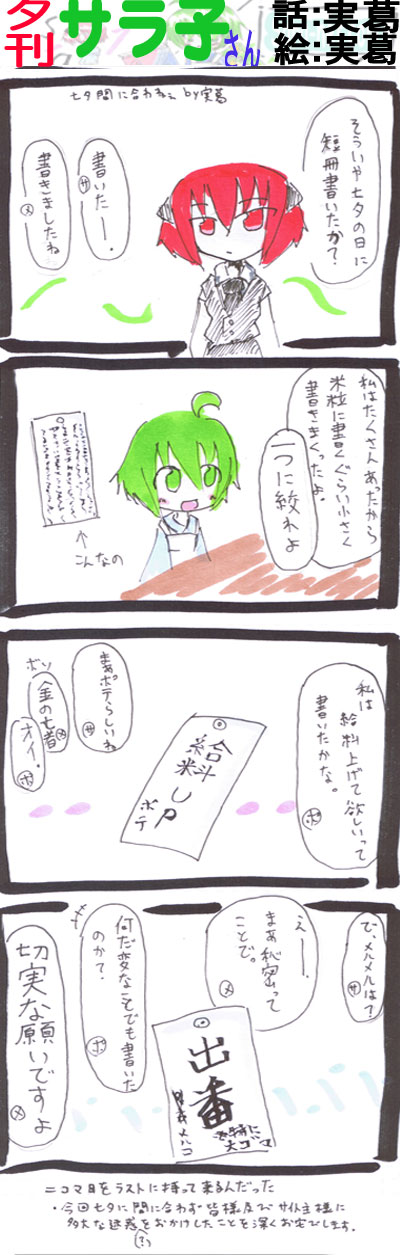 夕刊
サラ子さん
話:実葛
絵:実葛
七夕間に合わねぇ by実葛
そういや七夕の日に
短冊書いたか?
書いたー。
サ
書きましたね
メ
私はたくさんあったから
米粒に書くぐらい小さく
書きまくったよ。
一つに絞れよ
こんなの
私は
給料上げて欲しいって
書いたかな。
ポ
まあポテらしいね
サ
ボソ
金の亡者
メ
オイ。
ポ
給料UP
ポテ
で、メルメルは?
サ
えー、
まあ秘密って
ことで。
メ
何だ変なことでも書いた
のか?
ポ
出番
切実な願いですよ
メ
二コマ目をラストに持って来るんだった
・今回七夕に間に合わず皆様及びサイト主様に
多大な迷惑をおかけしたことを深くお詫びします。
(?)